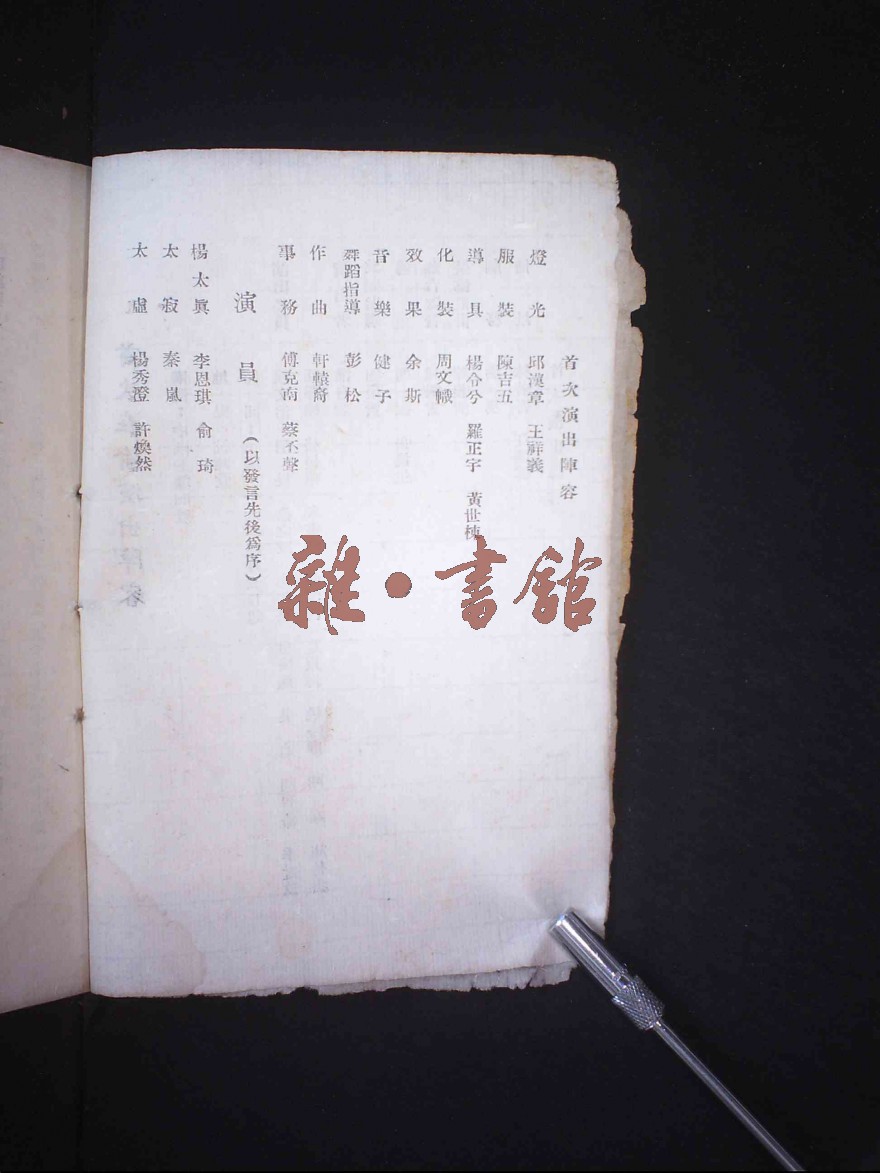 首次演出陣容
燈光 邱漢章 王祥義
服裝 陳吉五
導具 楊令公 羅正宇 黃世棟
化裝 周文幟
效果 余斯
音樂 健子
舞蹈指導 彭松
作曲 軒轅裔
事務 傅克南 蔡丕聲
演員 (以發言先後爲序)
楊太眞 李恩琪 俞琦
太寂 秦嵐
太虛 楊秀澄 許煥然
雜·書館